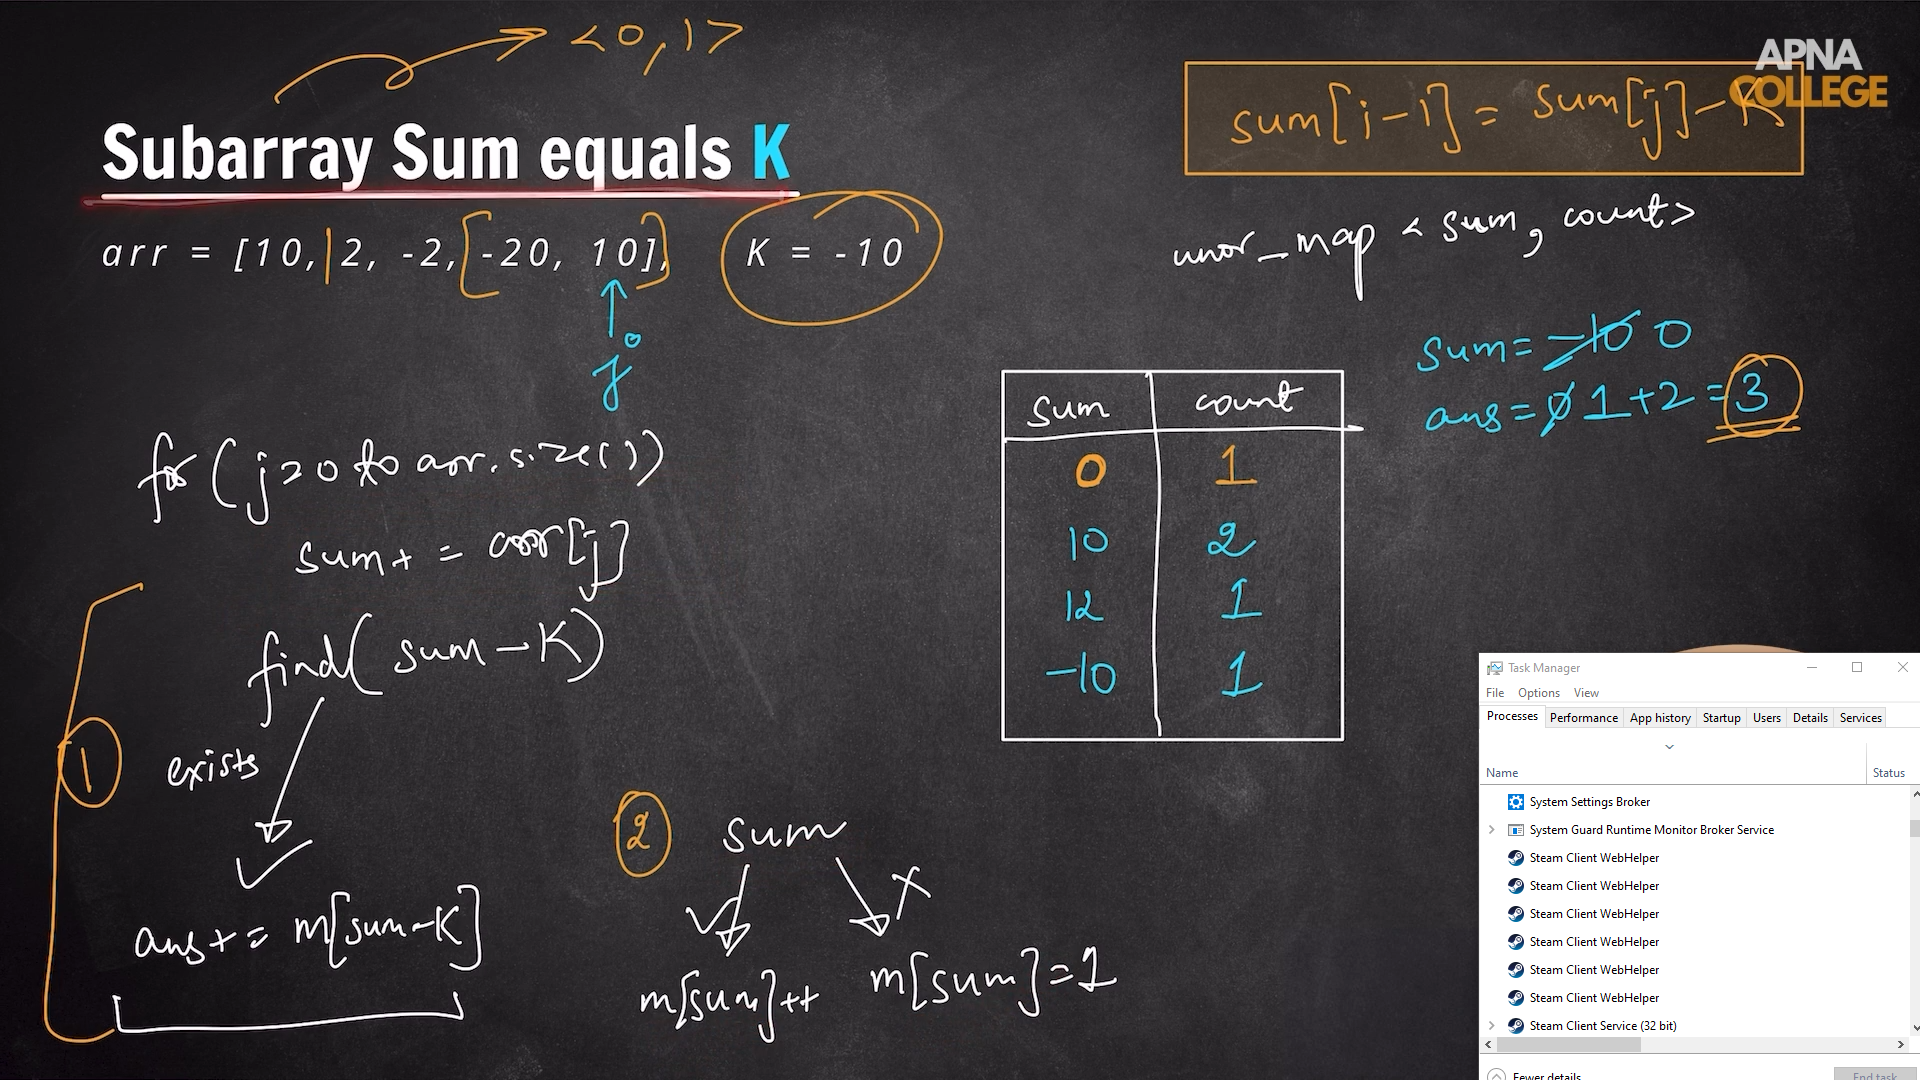 <0,1>
APNA
COLLEGE
sum[i-1] = sum[j]-K
Subarray Sum equals K
arr = [10, 2, -2, -20, 10], K = -10
unor_map <sum, count>
j
sum = -10 0
ans = 0 1+2 = 3
sum count
0 1
10 2
12 1
-10 1
for (j=0 to arr.size())
sum+ = arr[j]
find(sum-K)
1
exists
ans+ = m[sum-K]
2
sum
m[sum]++ m[sum]=1
Task Manager
File Options View
Processes Performance App history Startup Users Details Services
Name Status
System Settings Broker
System Guard Runtime Monitor Broker Service
Steam Client WebHelper
Steam Client WebHelper
Steam Client WebHelper
Steam Client WebHelper
Steam Client WebHelper
Steam Client WebHelper
Steam Client Service (32 bit)
Fewer details End task